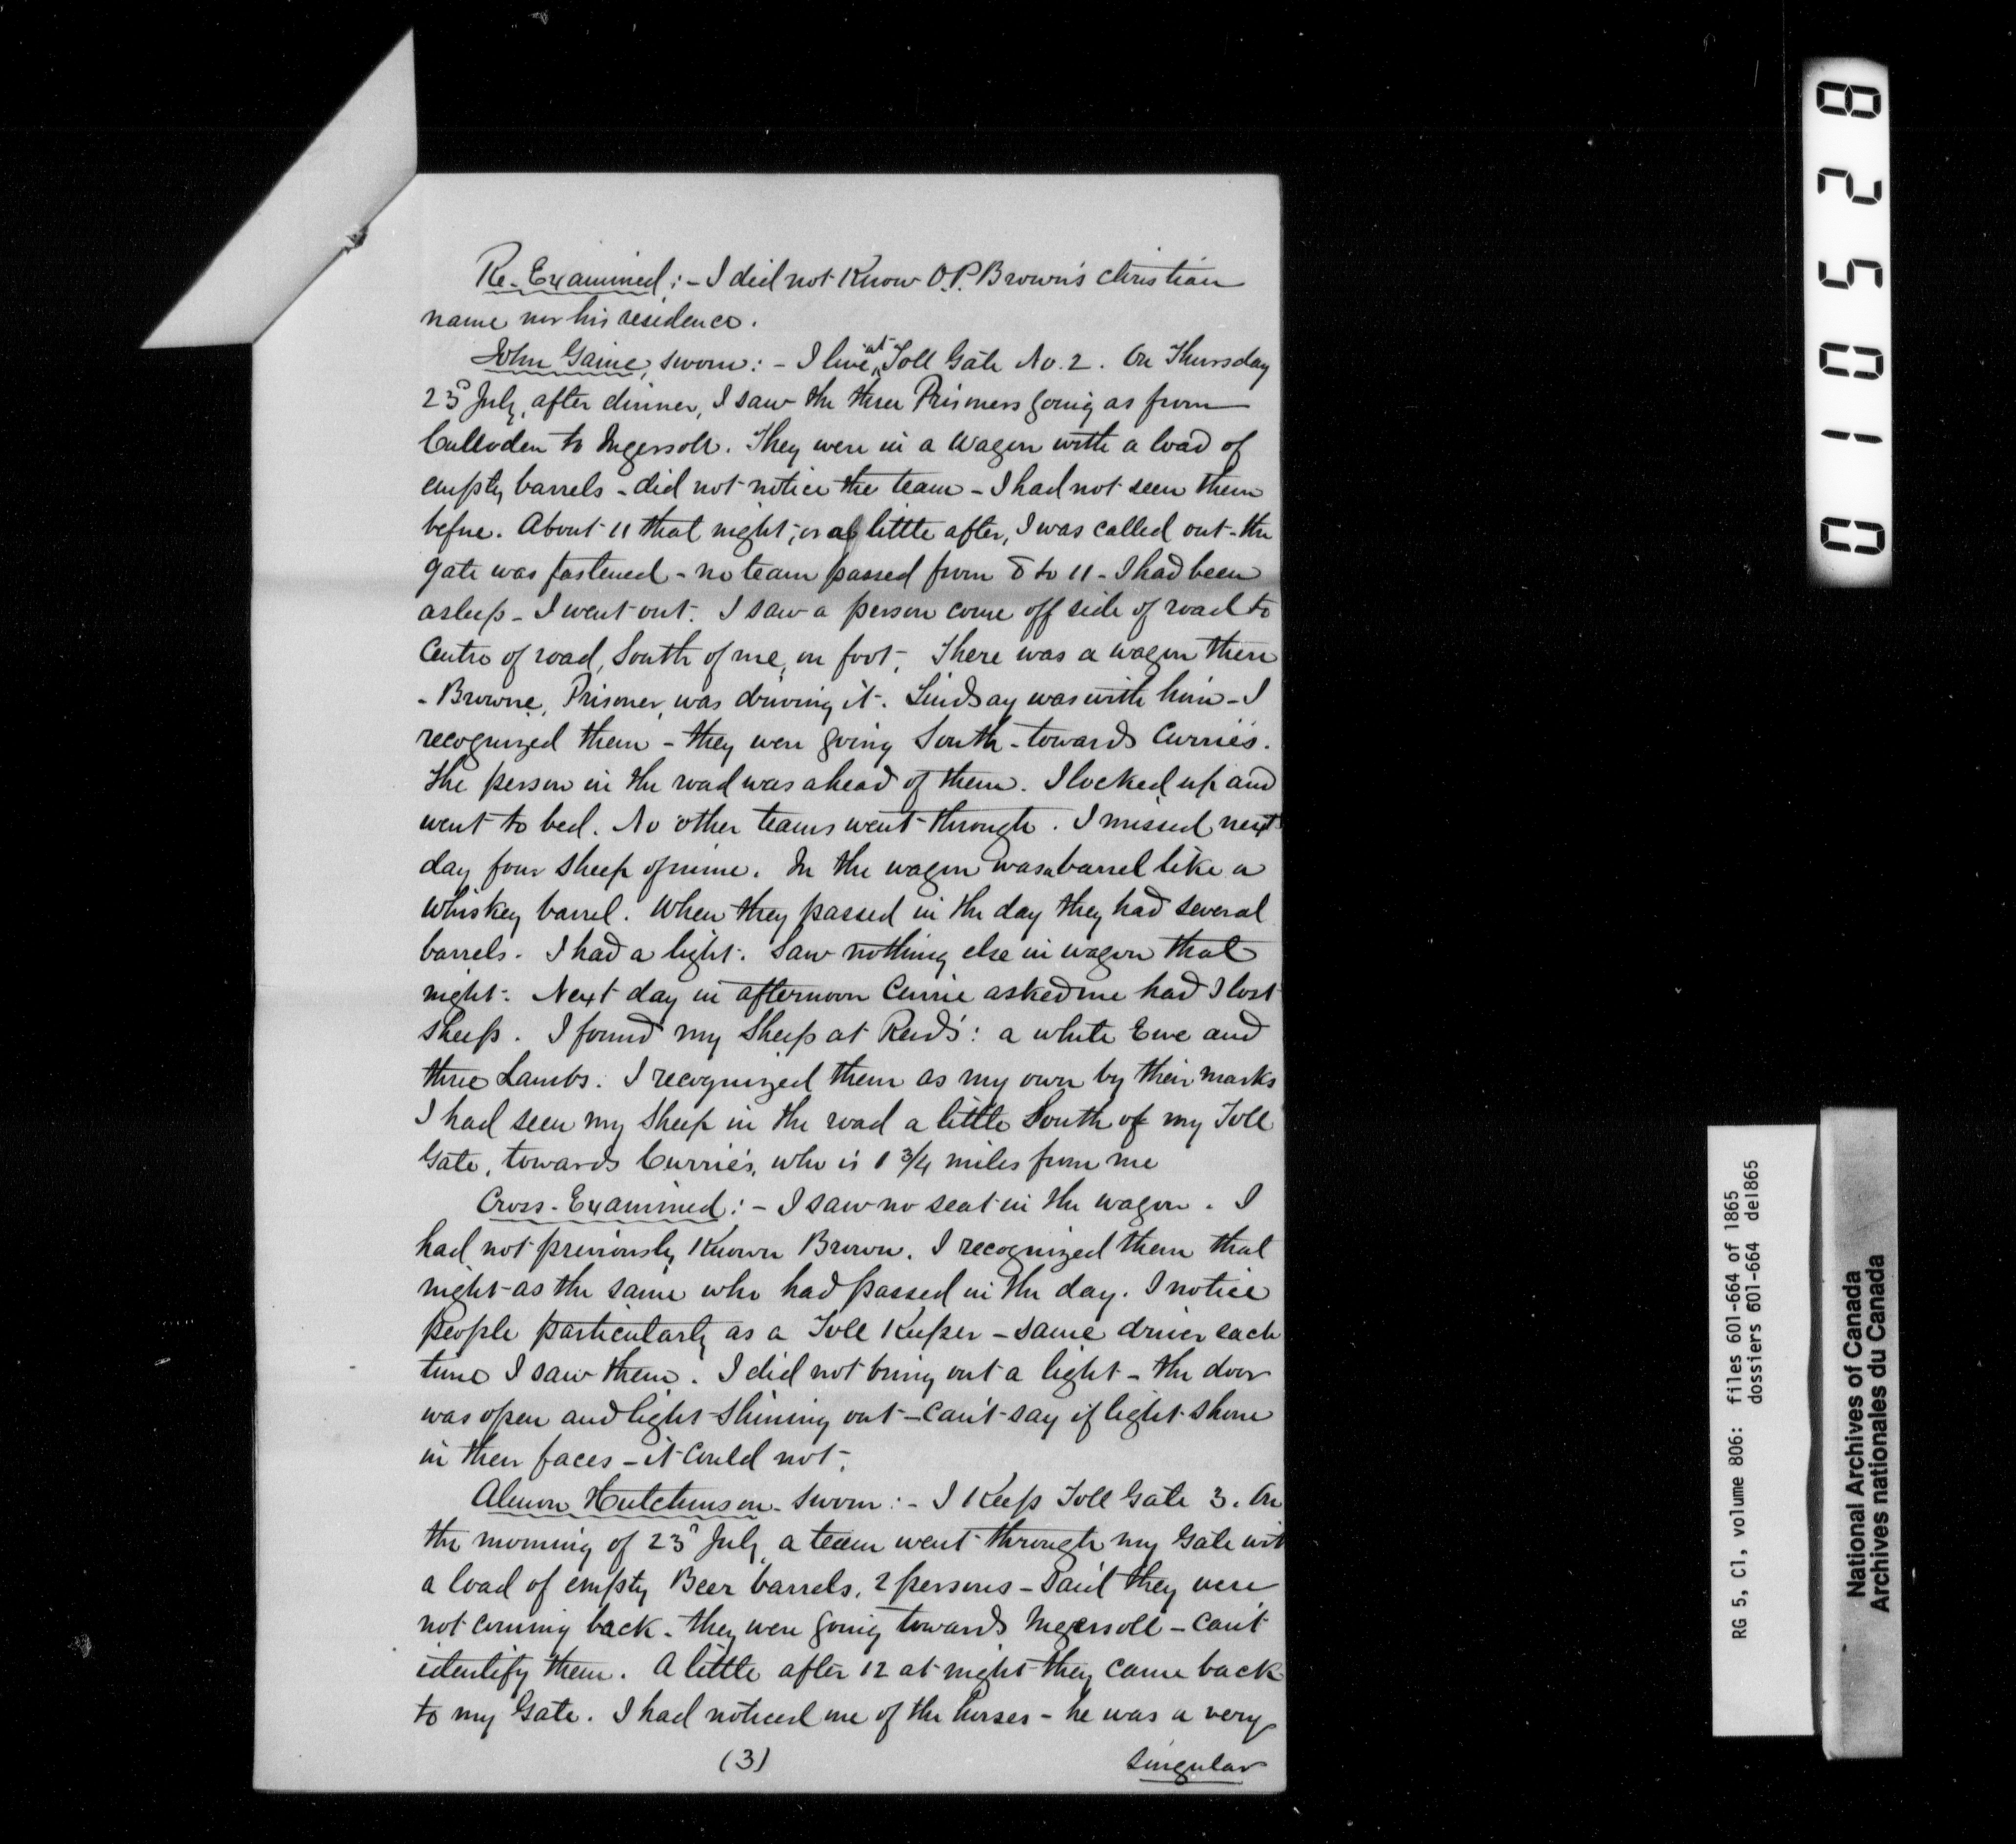 Re-Examined:- I did not Know O.P. Brown's Christian
name nor his residence.
John Gaine, sworn:- I live at Toll Gate No. 2. On Thursday
23d July, after dinner, I saw the three Prisoners going as from
Culloden to Ingersoll. They were in a Wagon with a load of
empty barrels - did not notice the team - I had not seen them
before. About 11 that night, or a little after, I was called out - the
gate was fastened - no team passed from 8 to 11 - I had been
asleep - I went out. I saw a person come off side of road to
Centre of road, South of me, on foot. There was a wagon there
- Browne, Prisoner, was driving it. Lindsay was with him - I
recognized them - they were going South - towards Currie's.
The person in the road was ahead of them. I locked up and
went to bed. No other teams went through. I missed next
day four sheep of mine. In the wagon was a barrel like a
Whiskey barrel. When they passed in the day they had several
barrels. I had a light. Saw nothing else in wagon that
night. Next day in afternoon Currie asked me had I lost
sheep. I found my Sheep at Reid's: a white Ewe and
three Lambs. I recognized them as my own by their marks
I had seen my Sheep in the road a little South of my Toll
Gate, towards Currie's, who is 1 3/4 miles from me
Cross-Examined:- I saw no seat in the wagon. I
had not previously Known Brown. I recognized them that
night as the same who had passed in the day. I notice
people particularly as a Toll Keeper - same driver each
time I saw them. I did not bring out a light - the door
was open and light shining out - can't say if light shone
in their faces - it could not.
Almon Hutchinson - sworn:- I Keep Toll Gate 3. On
the morning of 23d July, a team went through my Gate wit
a load of empty Beer barrels, 2 persons - Said they were
not coming back - they were going towards Ingersoll - can't
identify them. A little after 12 at night they came back
to my Gate. I had noticed one of the horses - he was a very
(3) singular
010528
RG 5, C1, volume 806: files 601-664 of 1865
dossiers 601-664 de1865
National Archives of Canada
Archives nationales du Canada